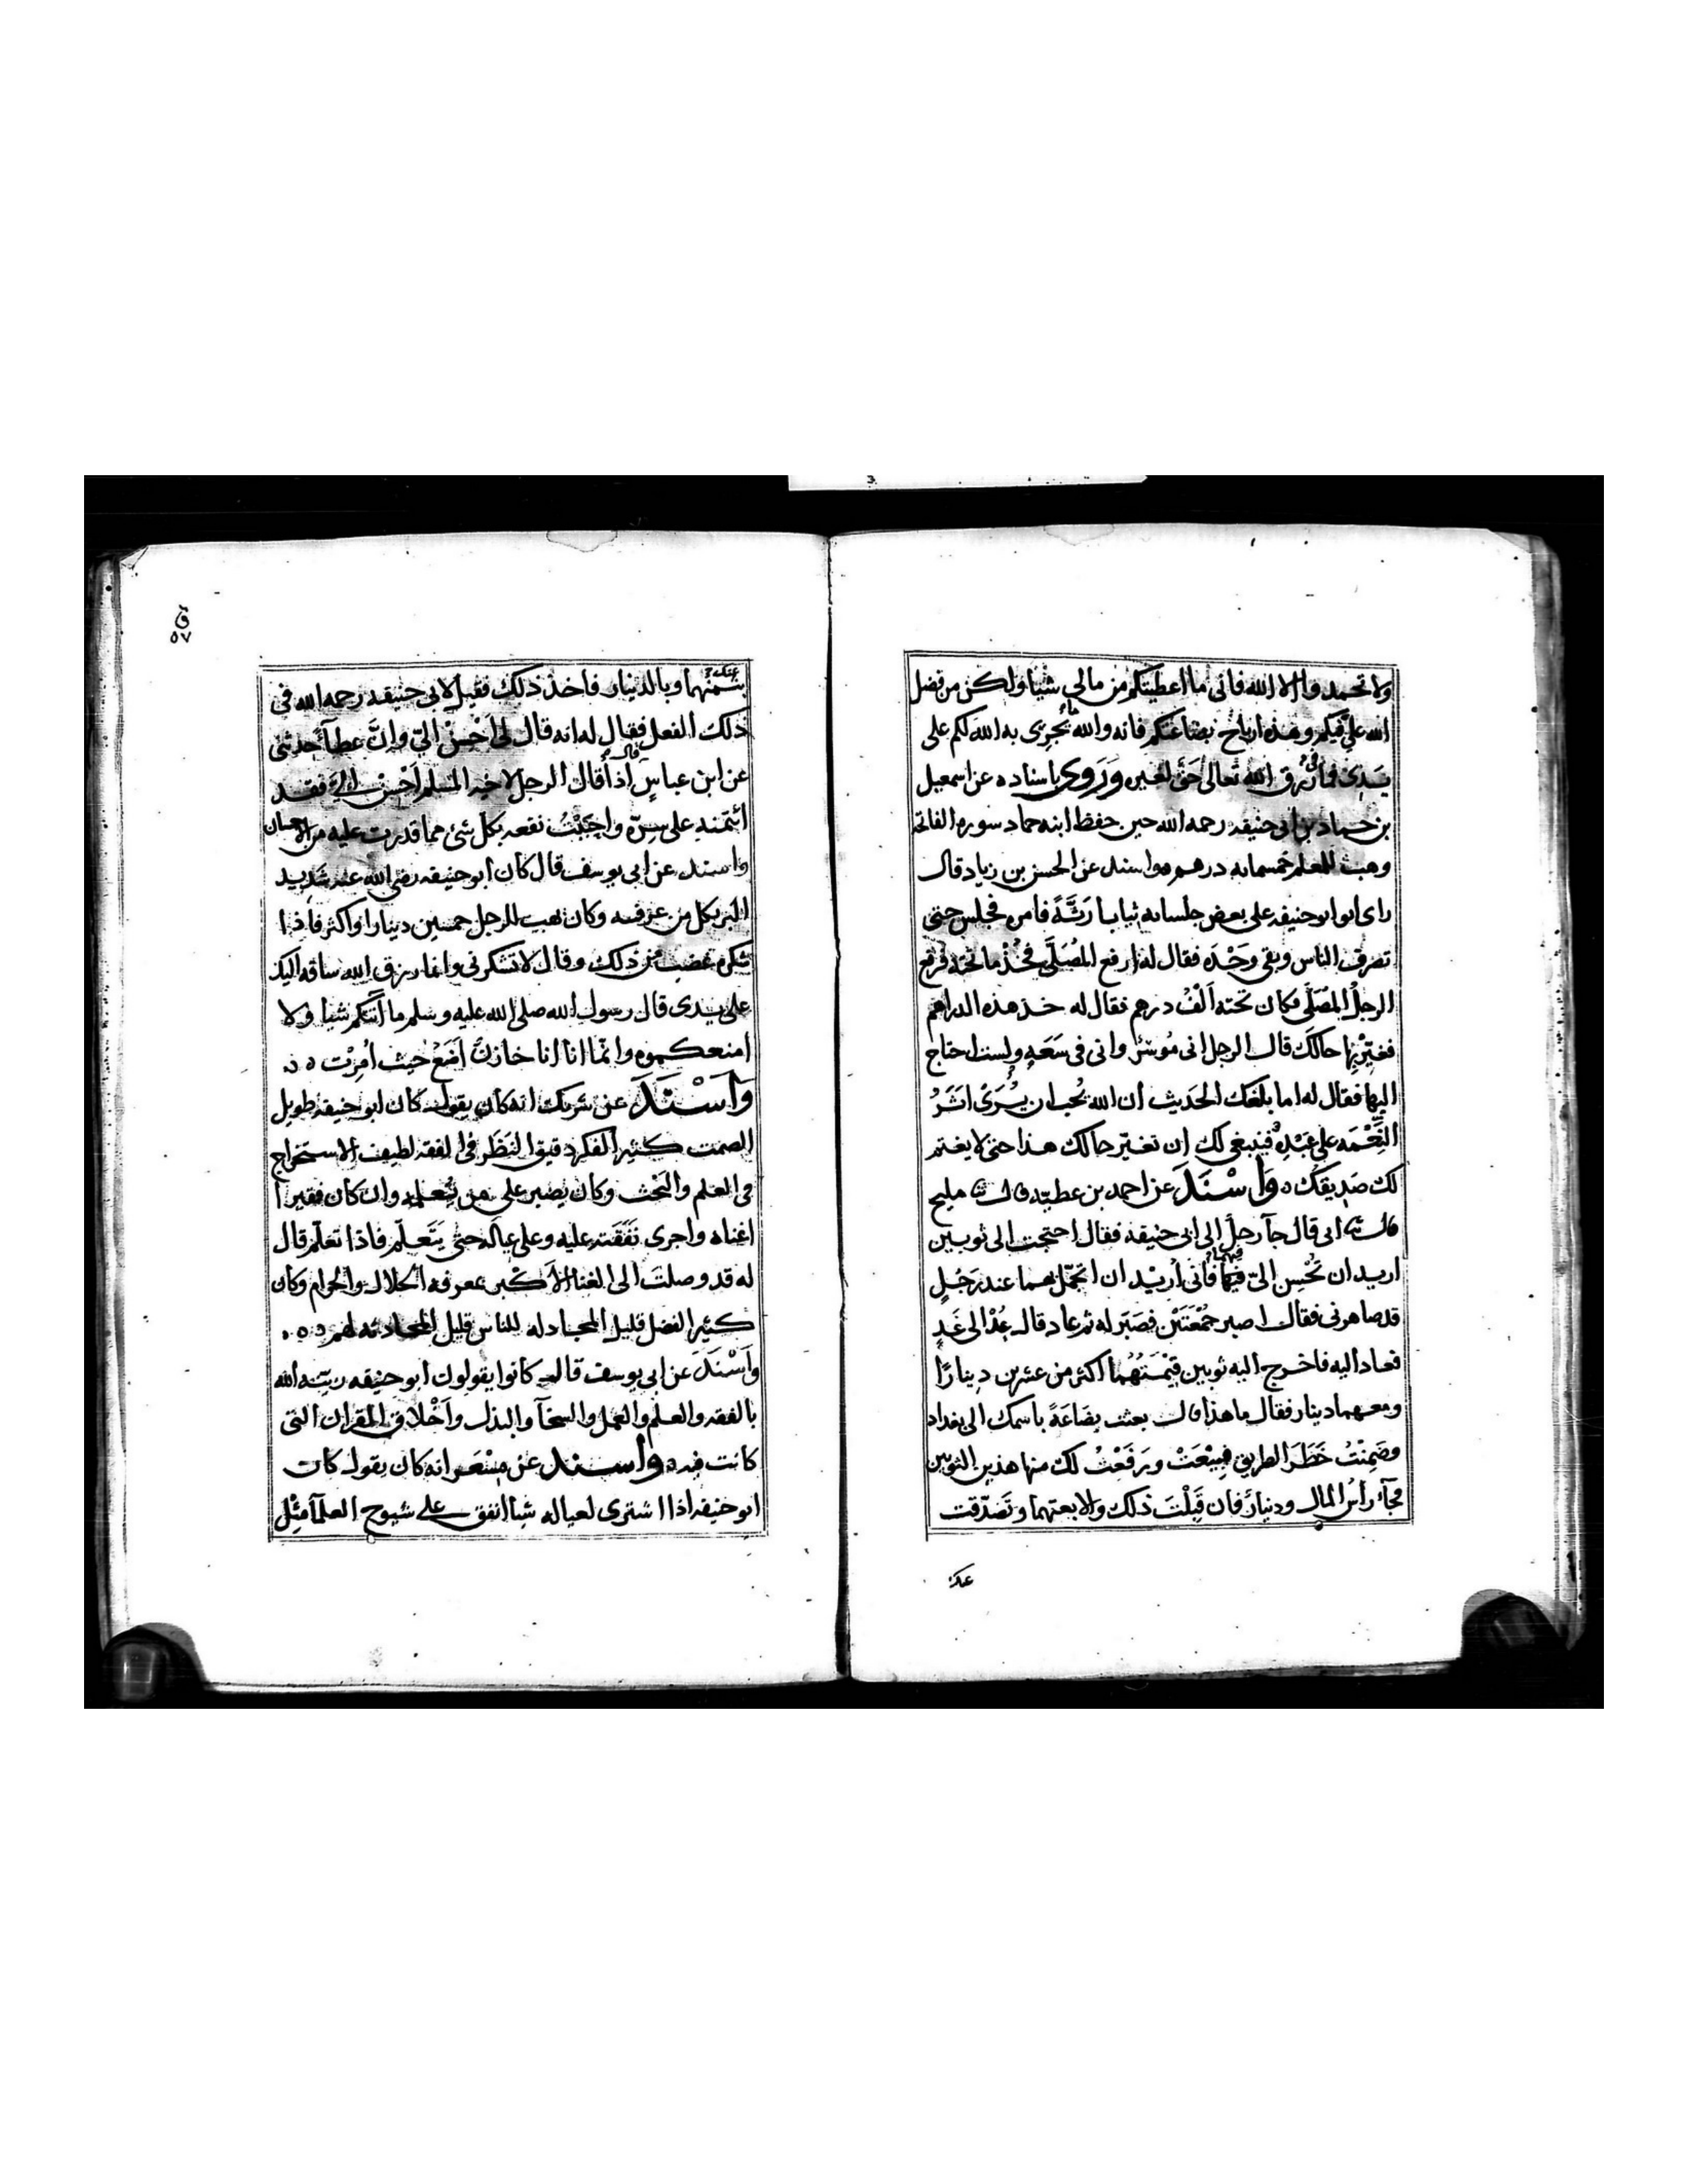 ولا تحمدوا الا الله فانى ما اعطيتكم من مالى شيا ولكن من فضل
الله على فيكم وهذه ارباح بضاعتكم فانه والله مما يجرى به الله لكم على
يدى فما فى رزق الله تعالى حق لغيره وروى باسناده عن اسمعيل
بن حماد بن ابى حنيفه رحمه الله حين حفظ ابنه حماد سوره الفاتحه
وهب للمعلم خمسمايه درهم ه واسند عن الحسن بن زياد قال
راى ابو ابو حنيفه على بعض جلسايه ثيابا رثة فامره فجلس حتى
تصرف الناس وبقى وحده فقال له ارفع المصلى فخذ ما تحته فرفع
الرجل المصلى فكان تحته الف درهم فقال له خذ هذه الدراهم
فغير بها حالك قال الرجل انى موسر وانى فى سعه ولست احتاج
اليها فقال له اما بلغك الحديث ان الله يحب ان يرى اثر
النعمه على عبده فينبغى لك ان تغير حالك هذا حتى لا يغتم
لك صديقك ه واسند عن احمد بن عطيه قال ثنا مليح
قال ثنا ابى قال جآ رجل الى ابى حنيفه فقال احتجت الى ثوبين
اريد ان تحسن الى فيهما فانى اريد ان اتجمل بهما عند رجل
قد صاهرنى فقال اصبر جمعتين فصبر له ثم عاد قال عد الى غد
فعاد اليه فاخرج اليه ثوبين قيمتهما اكثر من عشرين دينارا
ومعهما دينار فقال ما هذا قال بعثت بضاعة باسمك الى بغداد
وضمنت خطر الطريق فبيعت ورفعت لك منها هذين الثوبين
فجآء راس المال ودينار فان قبلت ذلك والا بعتهما وتصدقت
عنك
ق
٥٧
عنك
بثمنهما وبالدينار فاخذ ذلك فقيل لابى حنيفه رحمه الله فى
ذلك الفعل فقال له انه قال لى احسن الى وان عطآ حدثنى
عن ابن عباس قال اذا قال الرجل لاخيه المسلم احسن الى فقد
ائتمنه على سره واجبت نفعه بكل شئ مما قدرت عليه من الاحسان
واسند عن ابى يوسف قال كان ابو حنيفه رضى الله عنه شديد
البر بكل من عرفه وكان يهب للرجل خمسين دينارا واكثر فاذا
شكره غضب من ذلك وقال لا تشكرنى وانما رزق الله ساقه اليك
على يدى قال رسول الله صلى الله عليه وسلم ما اتيكم شيا ولا
امنعكموه وانما انا انا خازن اضع حيث امرت ه
واسند عن شريك انه كان يقول كان ابو حنيفه طويل
الصمت كثير الفكر دقيق النظر فى الفقه لطيف الاستخراج
فى العلم والبحث وكان يصبر على من يعلمه وان كان فقيرا
اغناه واجرى نفقته عليه وعلى عياله حتى يتعلم فاذا تعلم قال
له قد وصلت الى الغنا الاكبر بمعرفه الحلال والحرام وكان
كثير الفضل قليل المجادله للناس قليل المحادثه لهم ه ه
واسند عن ابى يوسف قال كانوا يقولون ابو حنيفه زينه الله
بالفقه والعلم والعمل والسخآ والبذل واخلاق القران التى
كانت فيه ه واسند عن مسعر انه كان يقول كان
ابو حنيفه اذا اشترى لعياله شيا انفق على شيوخ العلمآ مثل